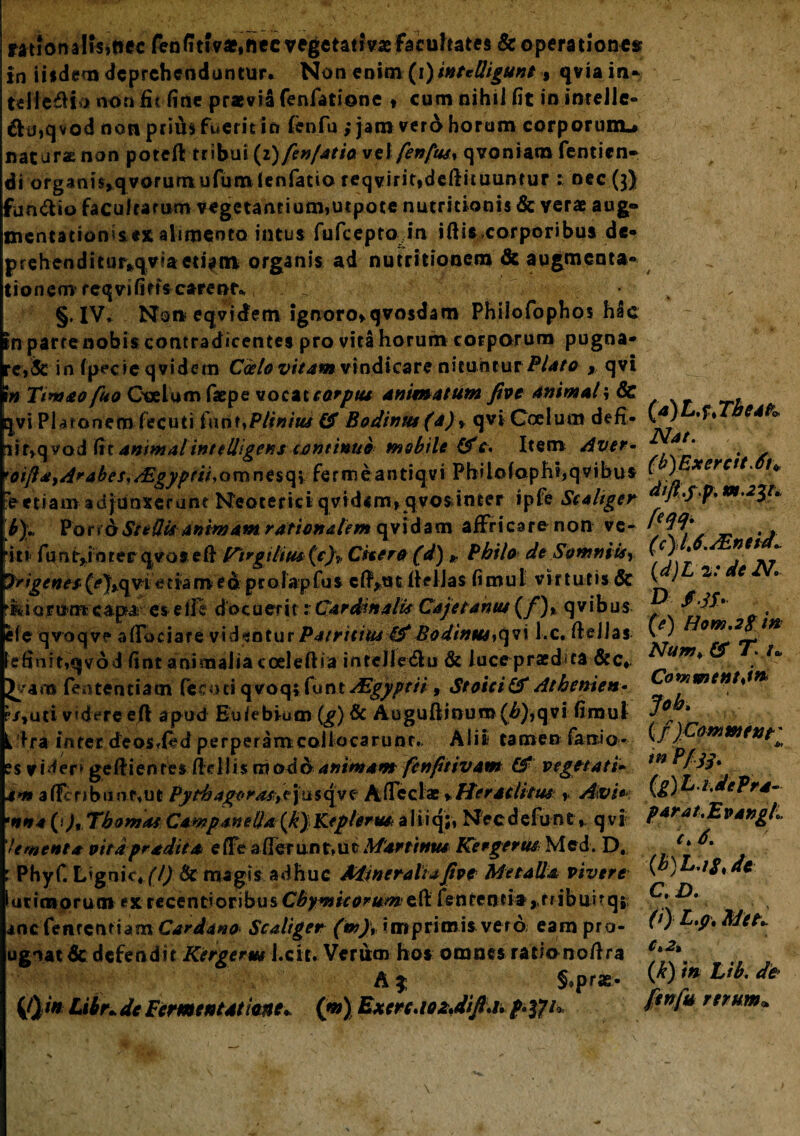 rationalis,nec sensitivæ,nec vegetativæ facultates & operationes
in iisdem deprehenduntur. Non enim (1) intelligunt, qvia in-
tellectio non fit sine prævia sensatione, cum nihil sit in intelle-
ctu,qvod non prius fuerit in sensu; jam verò horum corporum
naturæ non potest tribui (2) sensatio vel sensus, qvoniam sentien-
di organis,qvorum usum sensatio reqvirit,destituuntur: nec (3)
functio facultatum vegetantium,utpote nutritionis & veræ aug-
mentationis ex alimento intus suscepto in istis corporibus de-
prehenditur,qvia etiam organis ad nutritionem & augmenta-
tionem reqvisitis carent.
§. IV. Non eqvidem ignoro,qvosdam Philosophos hâc
in parte nobis contradicentes pro vitâ horum corporum pugna-
re,& in specie qvidem Cælo vitam vindicare nituntur Plato, qvi
in Timæo suo Cœlum sæpe vocat corpus animatum sive animal; &
qvi Platonem secuti sunt,Plinius & Bodinus (a), qvi Cœlum defi-
nit,qvod sit animal intelligens continuò mobile &c. Item Aver-
roista,Arabes,Ægyptii,omnesqȝ fermè antiqvi Philosophi,qvibus
se etiam adjunxerunt Neoterici qvidam, qvos inter ipse Scaliger
(b). Porrò Stellis animam rationalem qvidam affricare non ve-
riti sunt,inter qvos est Virgilius (c), Cicero (d), Philo de Somniis,
Origenes (e),qvi etiam eò prolapsus est,ut stellas simul virtutis &
capaces esse docuerit: Cardinalis Cajetanus (f), qvibus
sese qvoqve associare videntur Patritius & Bodinus,qvi l.c. stellas
definit,qvòd sint animalia cœlestia intellectu & luce prædita &c.
Qvam sententiam secuti qvoqȝ sunt Ægyptii, Stoici & Athenien-
ses,uti videre est apud Eusebium (g) & Augustinum (h),qvi simul
astra inter deos,sed perperam collocarunt. Alii tamen famio-
res videri gestientes stellis modò animam sensitivam & vegetati-
vam ascribunt,ut Pythagoras,ejusqve Asseclæ, Heraclitus, Avi-
cenna (i), Thomas Campanella (k) Keplerus aliiqȝ, Nec desunt, qvi
Elementa vitâ prædita esse asserunt,ut Martinus Kergerus Med. D.
& Phys. Lignic. (l) & magis adhuc Mineralia sive Metalla vivere
autimorum ex recentioribus Chymicorum est sententia, tribuitqȝ
hanc sententiam Cardano Scaliger (m), imprimis verò eam pro-
pugnat & defendit Kergerus l.cit. Verùm hos omnes ratio nostra
A 3 §.præ-
(l) in Libr. de Fermentatione. (m) Exerc.102.dist.1. p.371.
(a) L.5.Theatr.
Nat.
(b) Exercit.61.
dist.5.p. m.231.
seqq.
(c) l.6.Æneid.
(d) L 2: de N.
D f.35.
(e) Hom.28 in
Num. & T. 1.
Comment.in
Job.
(f) Comment:
in Ps.33.
(g) L.1.de Præ-
parat.Evangl.
c. 6.
(h) L.18. de
C. D.
(i) L.9. Met.
c.2.
(k) in Lib. de
sensu rerum.